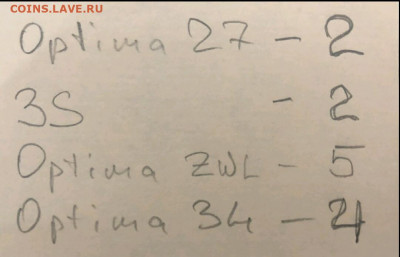 COINS.LAVE.RU
Optima 27 - 2
3S - 2
Optima ZWL - 5
Optima 34 - 4